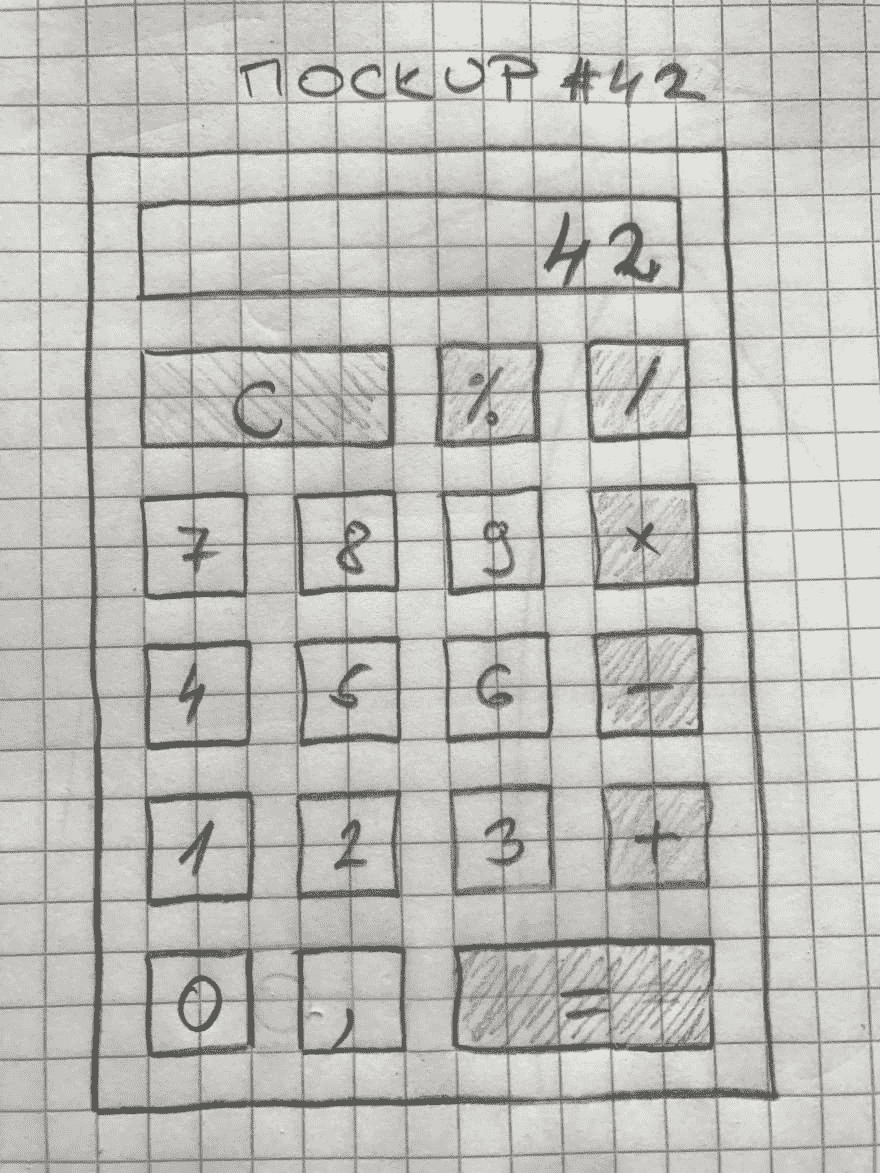 ПОСКUP #42
42
C % /
7 8 9 ×
4 5 6 -
1 2 3 +
0 , =